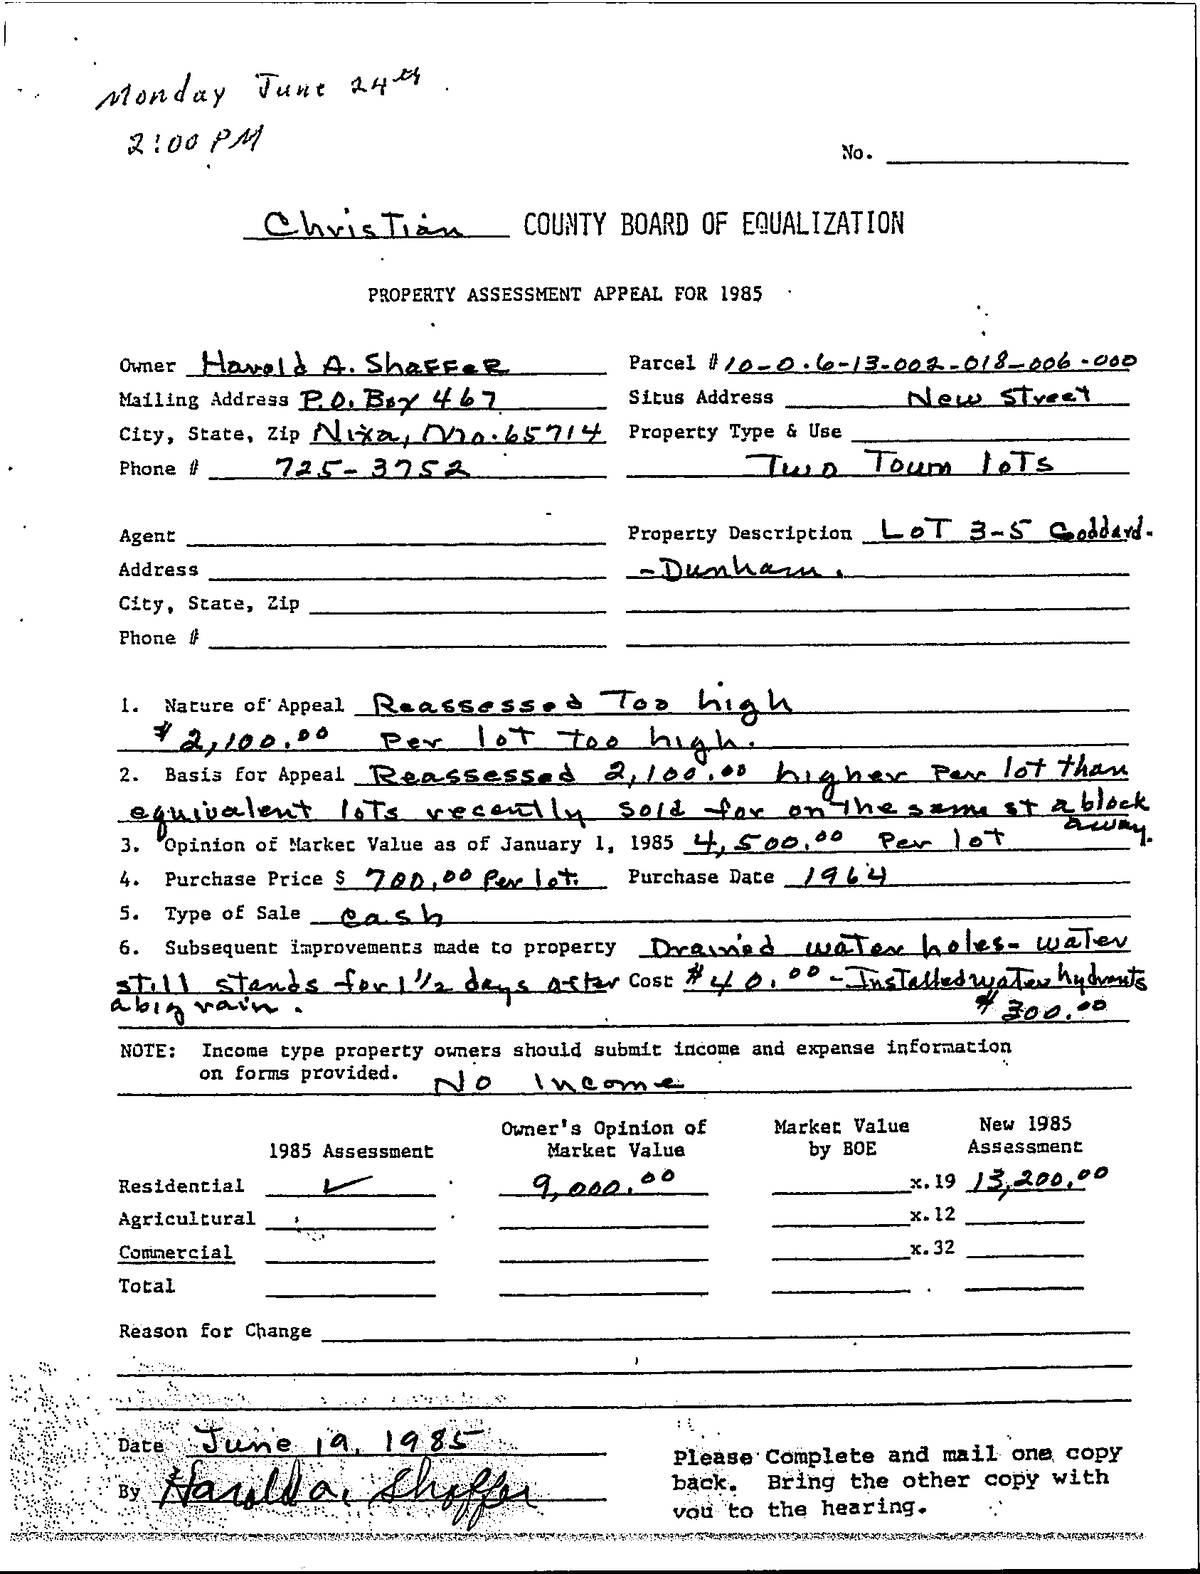 Monday June 24th
2:00 PM
No.
Christian COUNTY BOARD OF EQUALIZATION
PROPERTY ASSESSMENT APPEAL FOR 1985
Owner Harold A. Shaffer
Parcel # 10-0.6-13-002-018-006-000
Mailing Address P.O. Box 467
Situs Address New Street
City, State, Zip Nixa, Mo. 65714
Property Type & Use
Phone # 725-3752
Two Town lots
Agent
Property Description Lot 3-5 Goddard-
Address
-Dunham.
City, State, Zip
Phone #
1. Nature of Appeal Reassessed Too high
$2,100.00 Per lot too high.
2. Basis for Appeal Reassessed 2,100.00 higher Per lot than
equivalent lots recently sold for on the same st a block
away.
3. Opinion of Market Value as of January 1, 1985 4,500.00 Per lot
4. Purchase Price $ 700.00 Per lot. Purchase Date 1964
5. Type of Sale cash
6. Subsequent improvements made to property Drained water holes- water
still stands for 1 1/2 days after Cost $40.00 - Installed water hydrants
a big rain. $300.00
NOTE: Income type property owners should submit income and expense information
on forms provided. No Income
1985 Assessment Owner's Opinion of Market Value Market Value by BOE New 1985 Assessment
Residential ✓ 9,000.00 x.19 13,200.00
Agricultural x.12
Commercial x.32
Total
Reason for Change
Date June 19, 1985
By Harold A. Shaffer
Please Complete and mail one copy
back. Bring the other copy with
you to the hearing.